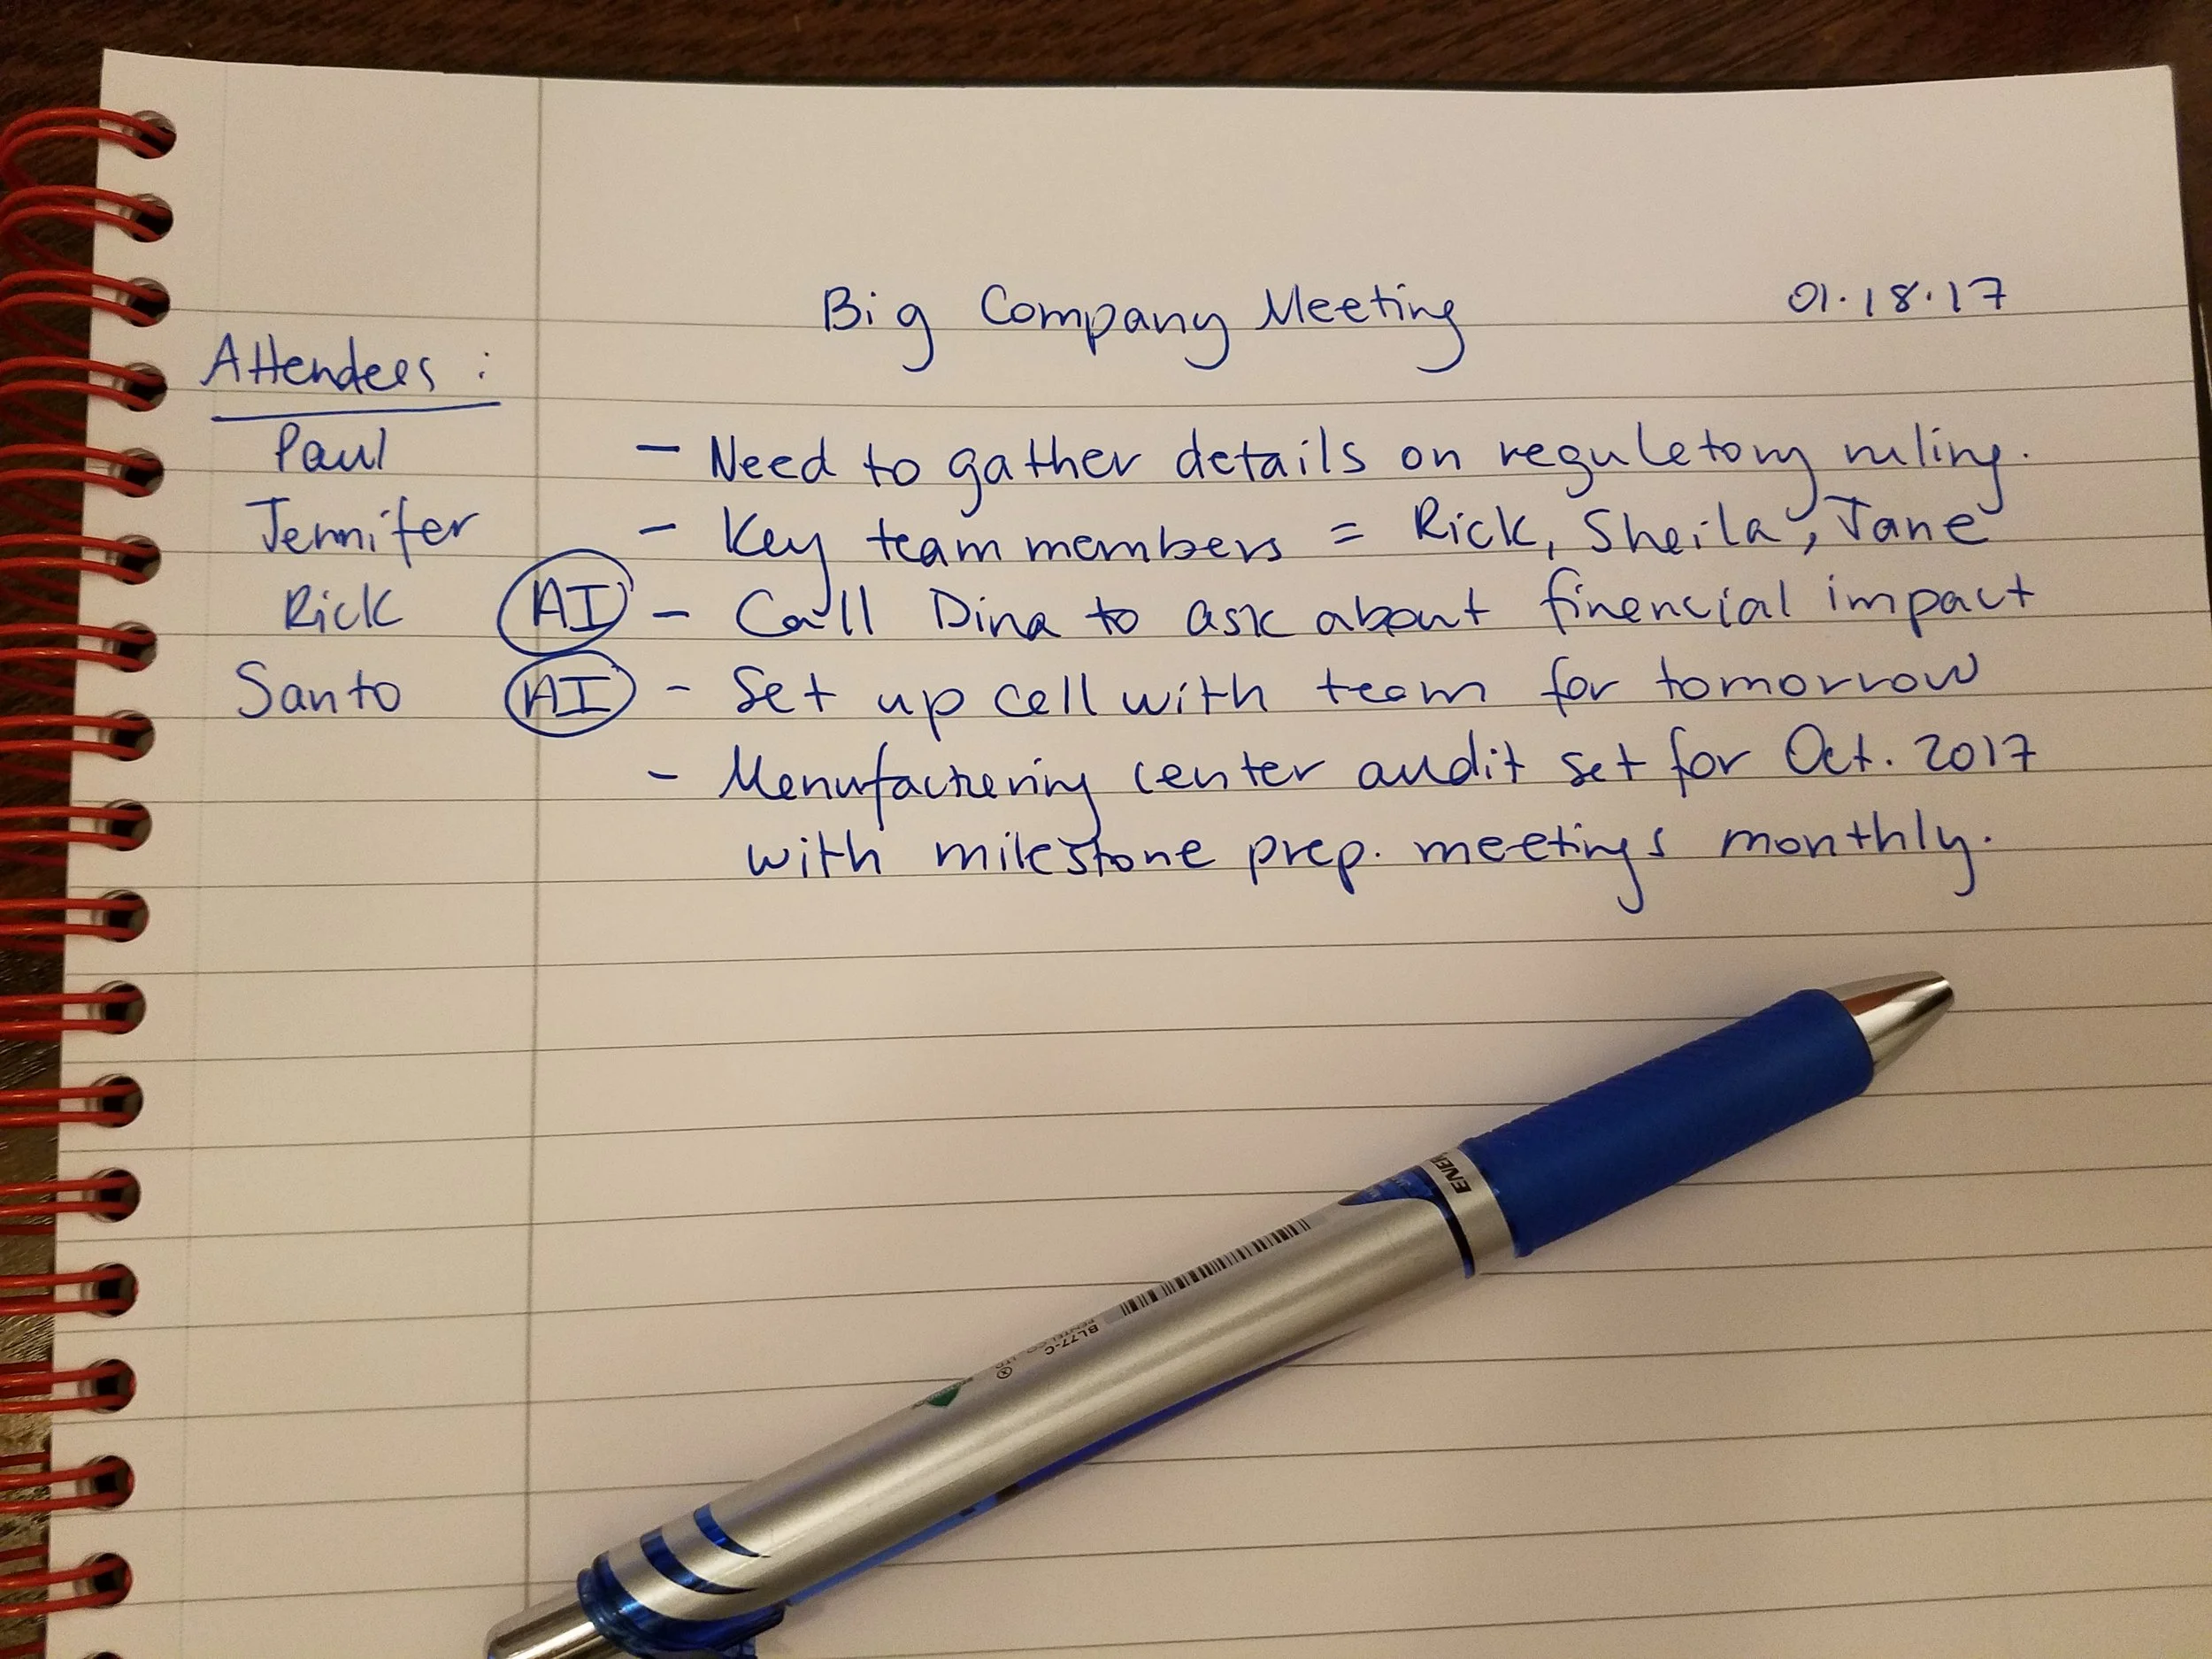 Big Company Meeting 01.18.17
Attendees :
Paul
Jennifer
Rick
Santo
- Need to gather details on reguletory ruling.
- Key team members = Rick, Sheila, Jane
AI - Call Dina to ask about finencial impact
AI - Set up cell with team for tomorrow
- Menufacturering center audit set for Oct. 2017
with milestone prep. meetings monthly.
ENER
BL77-C
PENTEL CO., LTD.